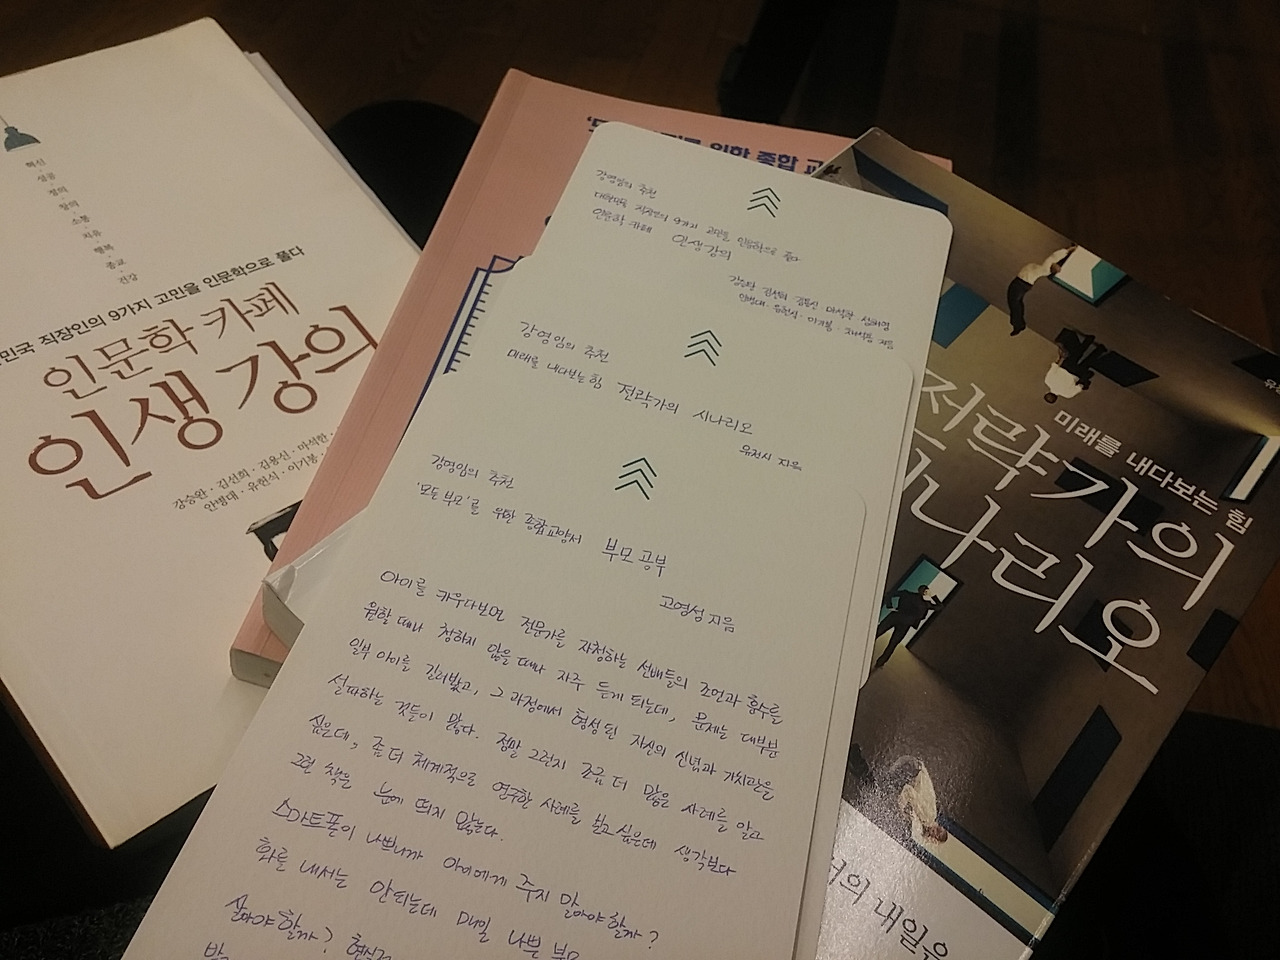 혁신
성공
정의
창의
소통
치유
행복
종교
건강
민국 직장인의 9가지 고민을 인문학으로 풀다
인문학 카페
인생 강의
강승완·김선희·김용신·마석한
안병대·유헌식·이기봉
위한 종합 교
강영임의 추천
대한민국 직장인의 9가지 고민을 인문학으로 풀다
인문학 카페 인생 강의
강승완 김선희 김용신 마석한
안병대·유헌식·이기봉 지음
강영임의 추천
미래를 내다보는 힘 전략가의 시나리오
유건식 지음
강영임의 추천
'모든 부모'를 위한 종합교양서 부모 공부
고영성 지음
아이를 키우다보면 전문가를 자청하는 선배들의 조언과 훈수를
원할 때나 청하지 않을 때나 자주 듣게 되는데, 문제는 대부분
일부 아이를 길러봤고, 그 과정에서 형성된 자신의 신념과 가치관을
설파하는 것들이 많다. 정말 그런지 조금 더 많은 사례를 알고
싶은데, 좀 더 체계적으로 연구한 사례를 보고 싶은데 생각보다
그런 책은 눈에 띄지 않는다.
스마트폰이 나쁘니까 아이에게 주지 말아야 할까?
화를 내서는 안되는데 매일 나쁜 부모
살아야 할까?
미래를 내다보는 힘
전략가의
시나리오
의 내일을